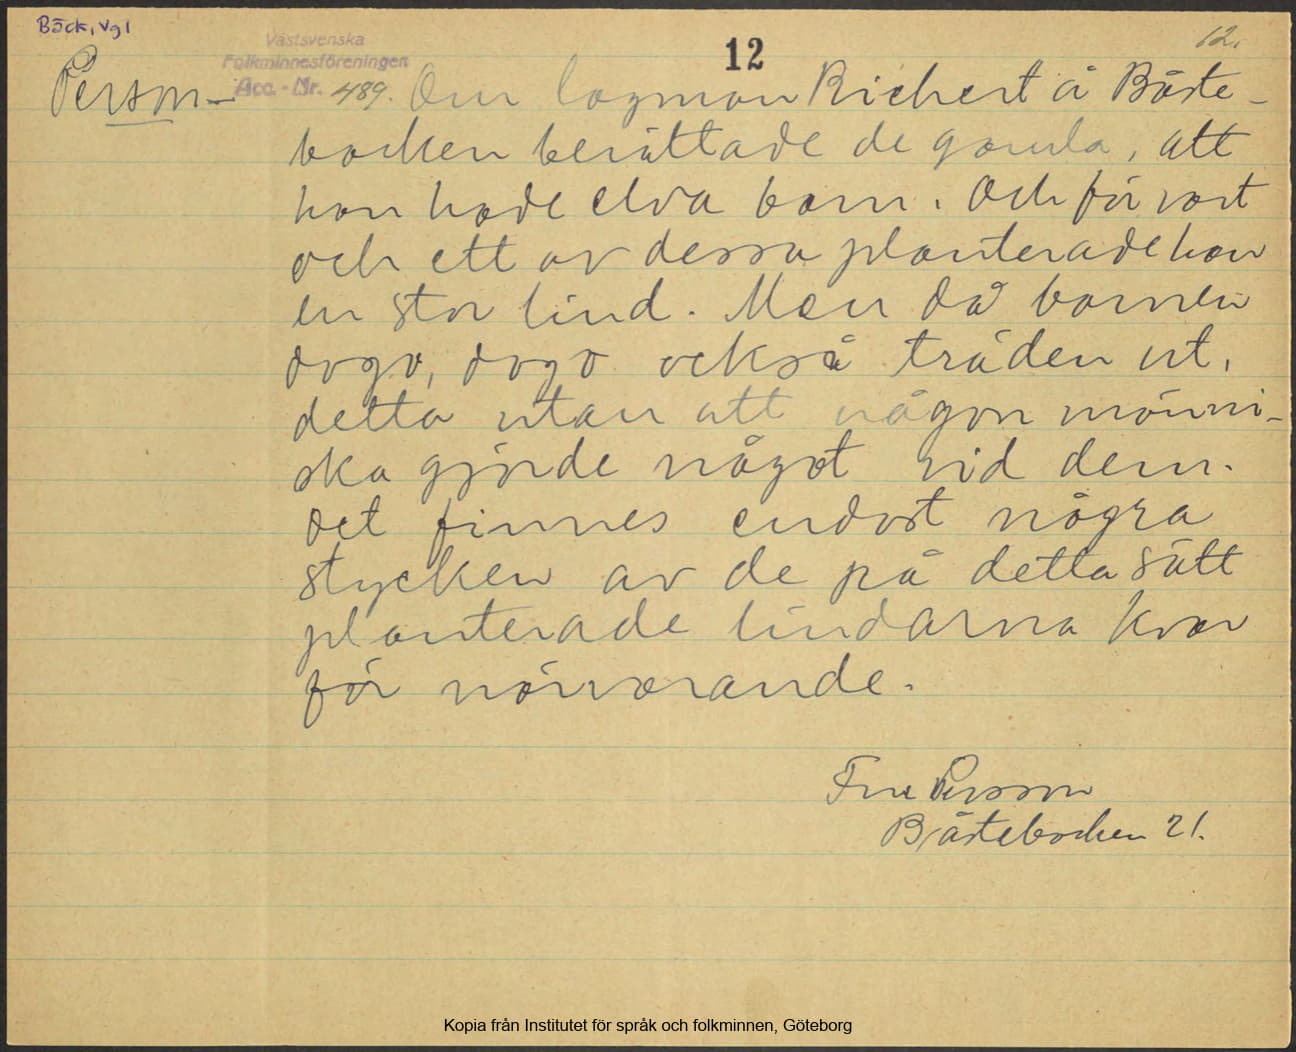 Bäck, Vgl
Västsvenska
Folkminnesföreningen
Acc. - Nr. 489.
12
12.
Person-
Om lagman Richert å Båste-
backen berättade de gamla, att
han hade elva barn. Och för vart
och ett av dessa planterade han
en stor lind. Men då barnen
dogo, dogo också träden ut,
detta utan att någon männi-
ska gjorde något vid dem.
Det finnes endast några
stycken av de på detta sätt
planterade lindarna kvar
för närvarande.
Persson
Båstebacken 21.
Kopia från Institutet för språk och folkminnen, Göteborg